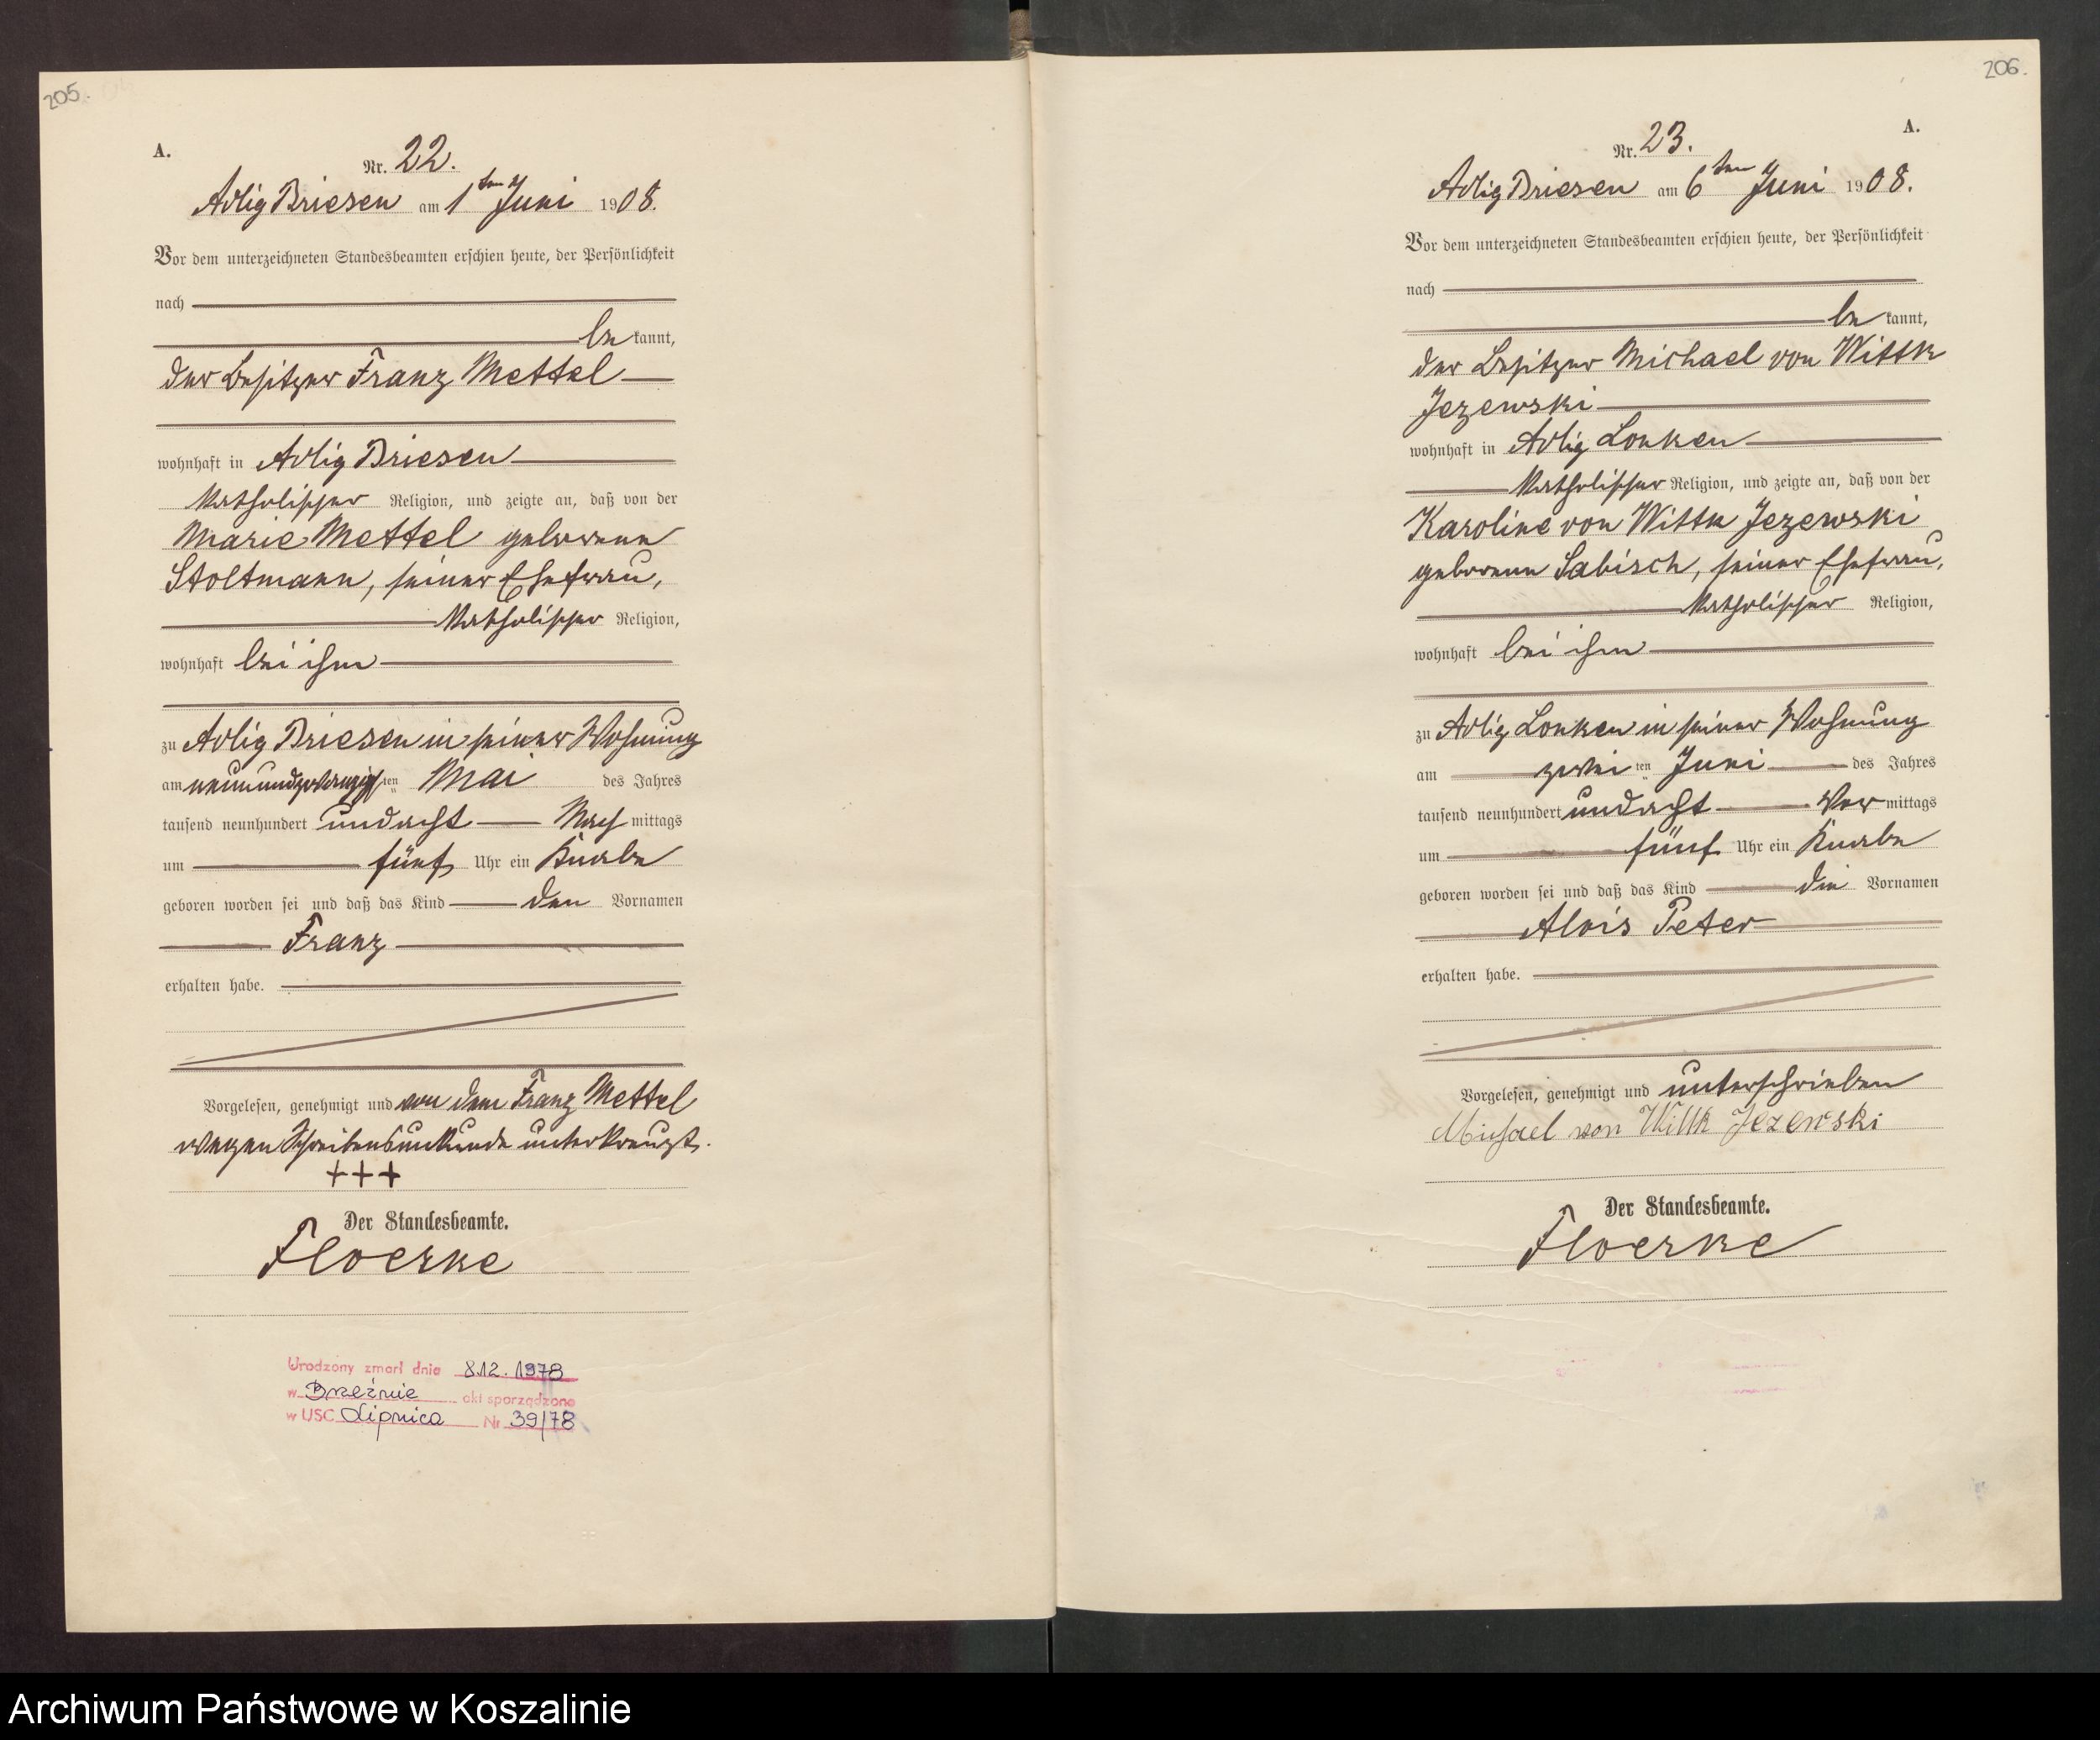 205.
A.
Nr. 22.
Adlig Briesen am 1ten Juni 1908.
Vor dem unterzeichneten Standesbeamten erschien heute, der Persönlichkeit
nach
be kannt,
der Besitzer Franz Mettel
wohnhaft in Adlig Briesen
katholischer Religion, und zeigte an, daß von der
Marie Mettel geborene
Stoltmann, seiner Ehefrau,
katholischer Religion,
wohnhaft bei ihm
zu Adlig Briesen in seiner Wohnung
am neunundzwanzigsten Mai des Jahres
tausend neunhundert undacht Nach mittags
um fünf Uhr ein Knabe
geboren worden sei und daß das Kind den Vornamen
Franz
erhalten habe.
Vorgelesen, genehmigt und von dem Franz Mettel
wegen Schreibensunkunde unterkreuzt.
+++
Der Standesbeamte.
Floerke
Urodzony zmarł dnia 8.12.1978
w Brzeźnie akt sporządzono
w USC Lipnica Nr 39/78
206.
A.
Nr. 23.
Adlig Briesen am 6ten Juni 1908.
Vor dem unterzeichneten Standesbeamten erschien heute, der Persönlichkeit
nach
be kannt,
der Besitzer Michael von Wittk
Jezewski
wohnhaft in Adlig Lonken
katholischer Religion, und zeigte an, daß von der
Karoline von Wittk Jezewski
geborene Sabisch, seiner Ehefrau,
katholischer Religion,
wohnhaft bei ihm
zu Adlig Lonken in seiner Wohnung
am zweiten Juni des Jahres
tausend neunhundert undacht Vor mittags
um fünf Uhr ein Knabe
geboren worden sei und daß das Kind die Vornamen
Alois Peter
erhalten habe.
Vorgelesen, genehmigt und unterschrieben
Michael von Wittk Jezewski
Der Standesbeamte.
Floerke
Archiwum Państwowe w Koszalinie